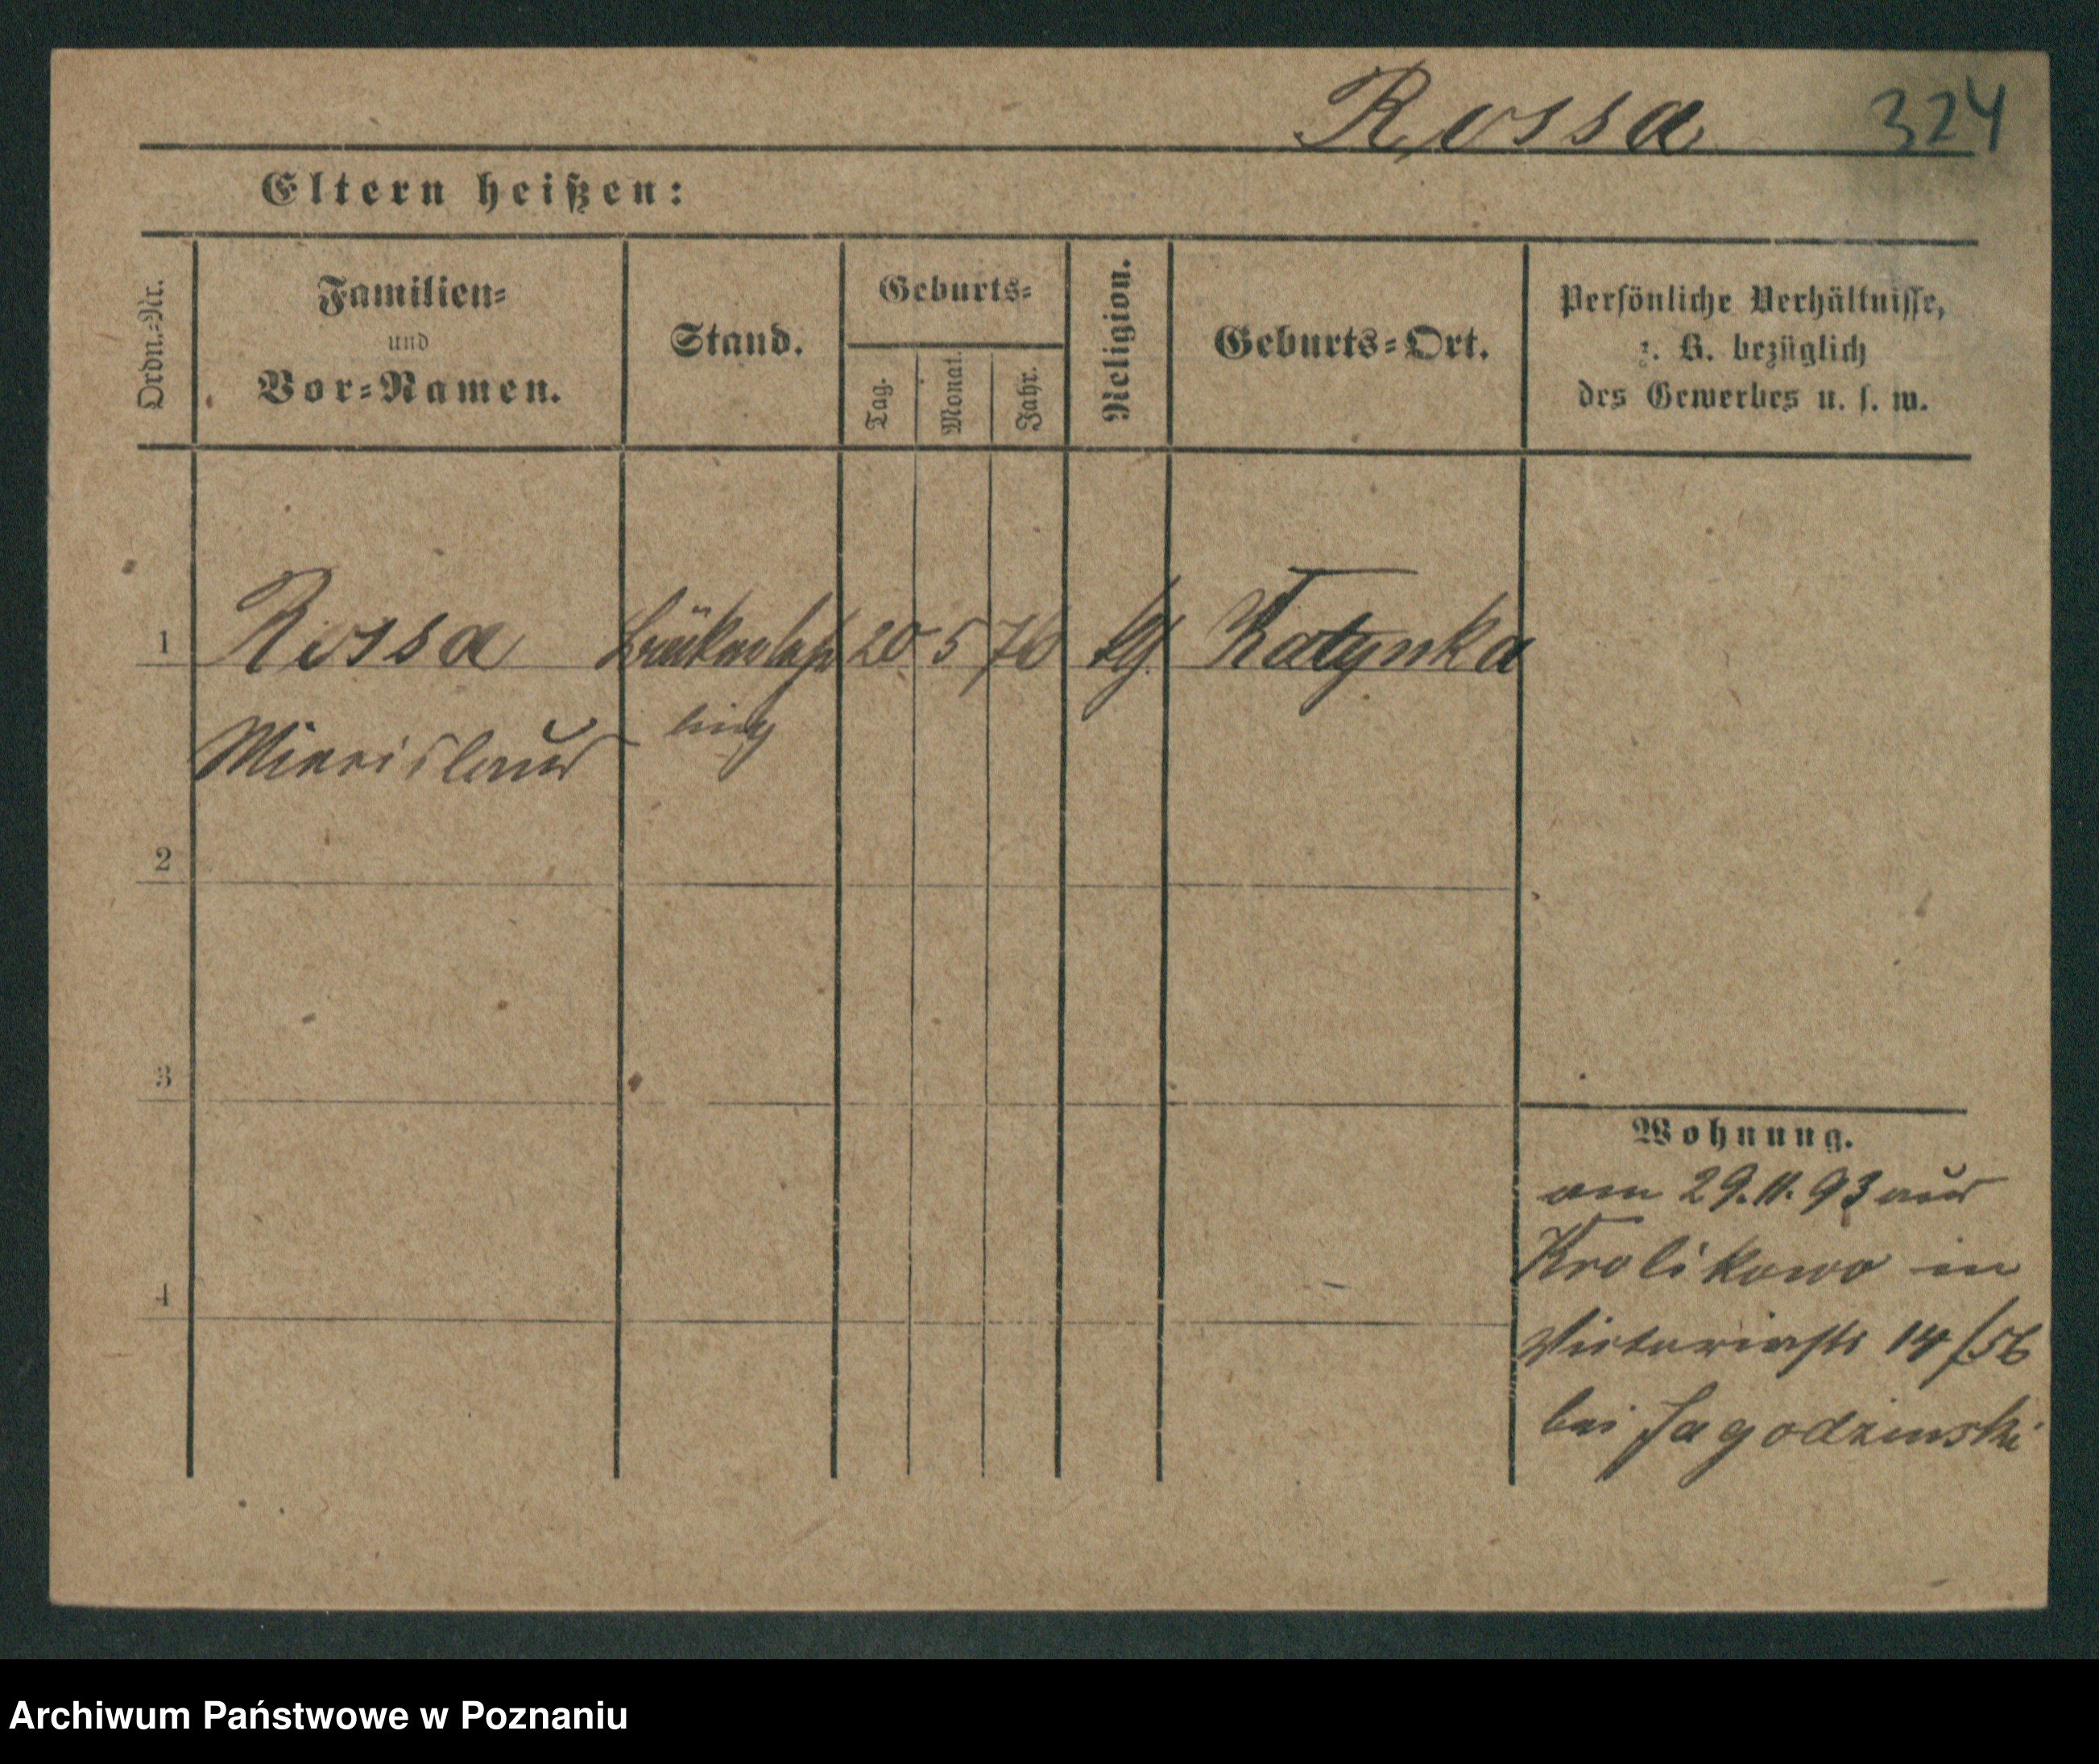 Rossa 324
Eltern heißen:
Ordn.=Nr.
Familien=
und
Vor=Namen.
Stand.
Geburts=
Tag.
Monat.
Jahr.
Religion.
Geburts=Ort.
Persönliche Verhältnisse,
z. B. bezüglich
des Gewerbes u. s. w.
1 Rossa 20 5 76 Katynka
ling
2
3
4
Wohnung.
am 29.11.93 aus
Krolikowo in
Victoriastr 14/56
bei Jagodzinski
Archiwum Państwowe w Poznaniu